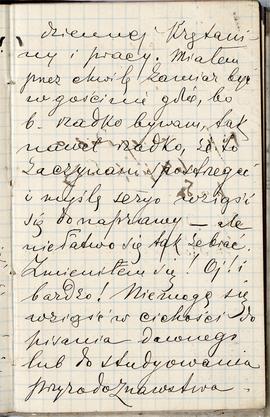 dziennej krzątani-
ny i pracy. Miałem
przez chwilę zamiar być
w gościnie gdzie, bo
b. rzadko bywam, tak
nawet rzadko, że to
zaczynam postrzegać
i myślę seryo wziąść
się do naprawy – ale
niełatwo się tak zebrać.
Zmieniłem się! Oj! i
bardzo! Niemogę się
wziąść w cichości do
pisania dawnego
lub do studyowania
przyrodoznawstwa